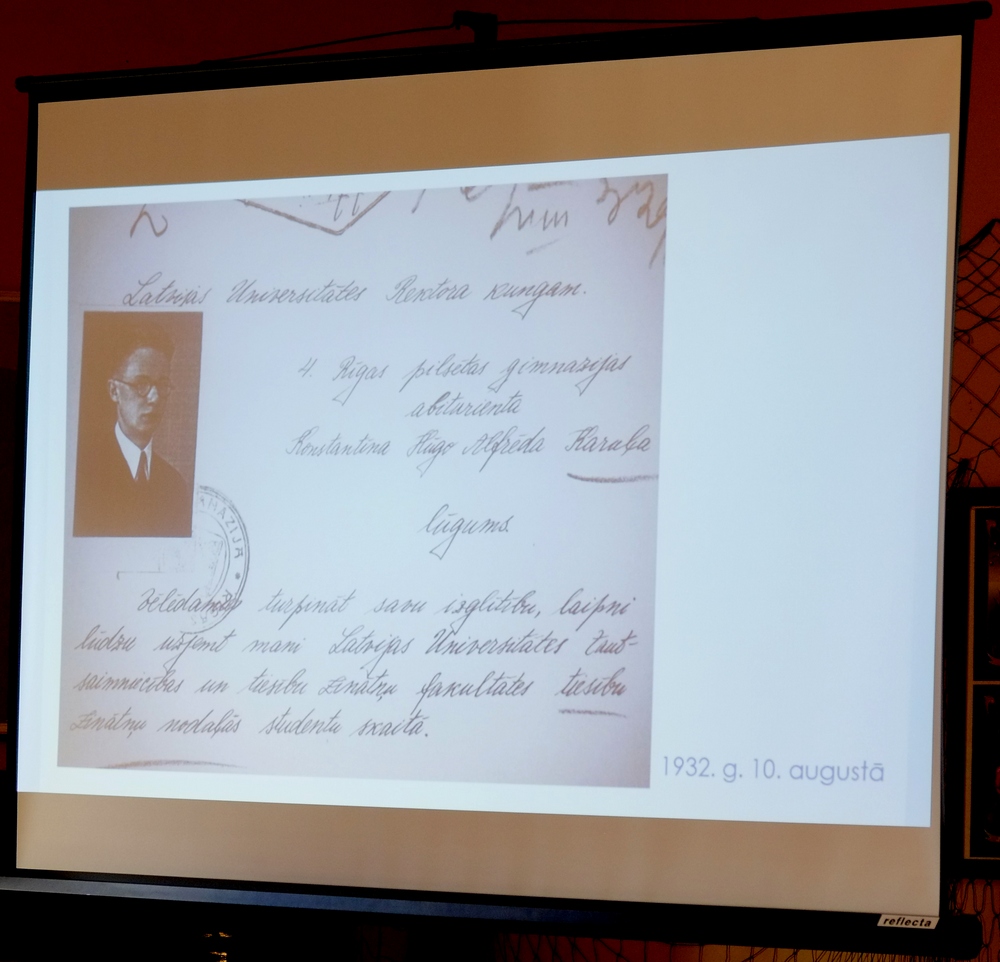 Latvijas Universitātes Rektora kungam.
4. Rīgas pilsētas ģimnāzijas
abiturienta
Konstantīna Hugo Alfrēda Karuļa
lūgums.
Vēlēdamies turpināt savu izglītību, laipni
lūdzu uzņemt mani Latvijas Universitātes taut-
saimniecības un tiesību zinātņu fakultātes tiesību
zinātņu nodaļās studentu skaitā.
1932. g. 10. augustā
reflecta